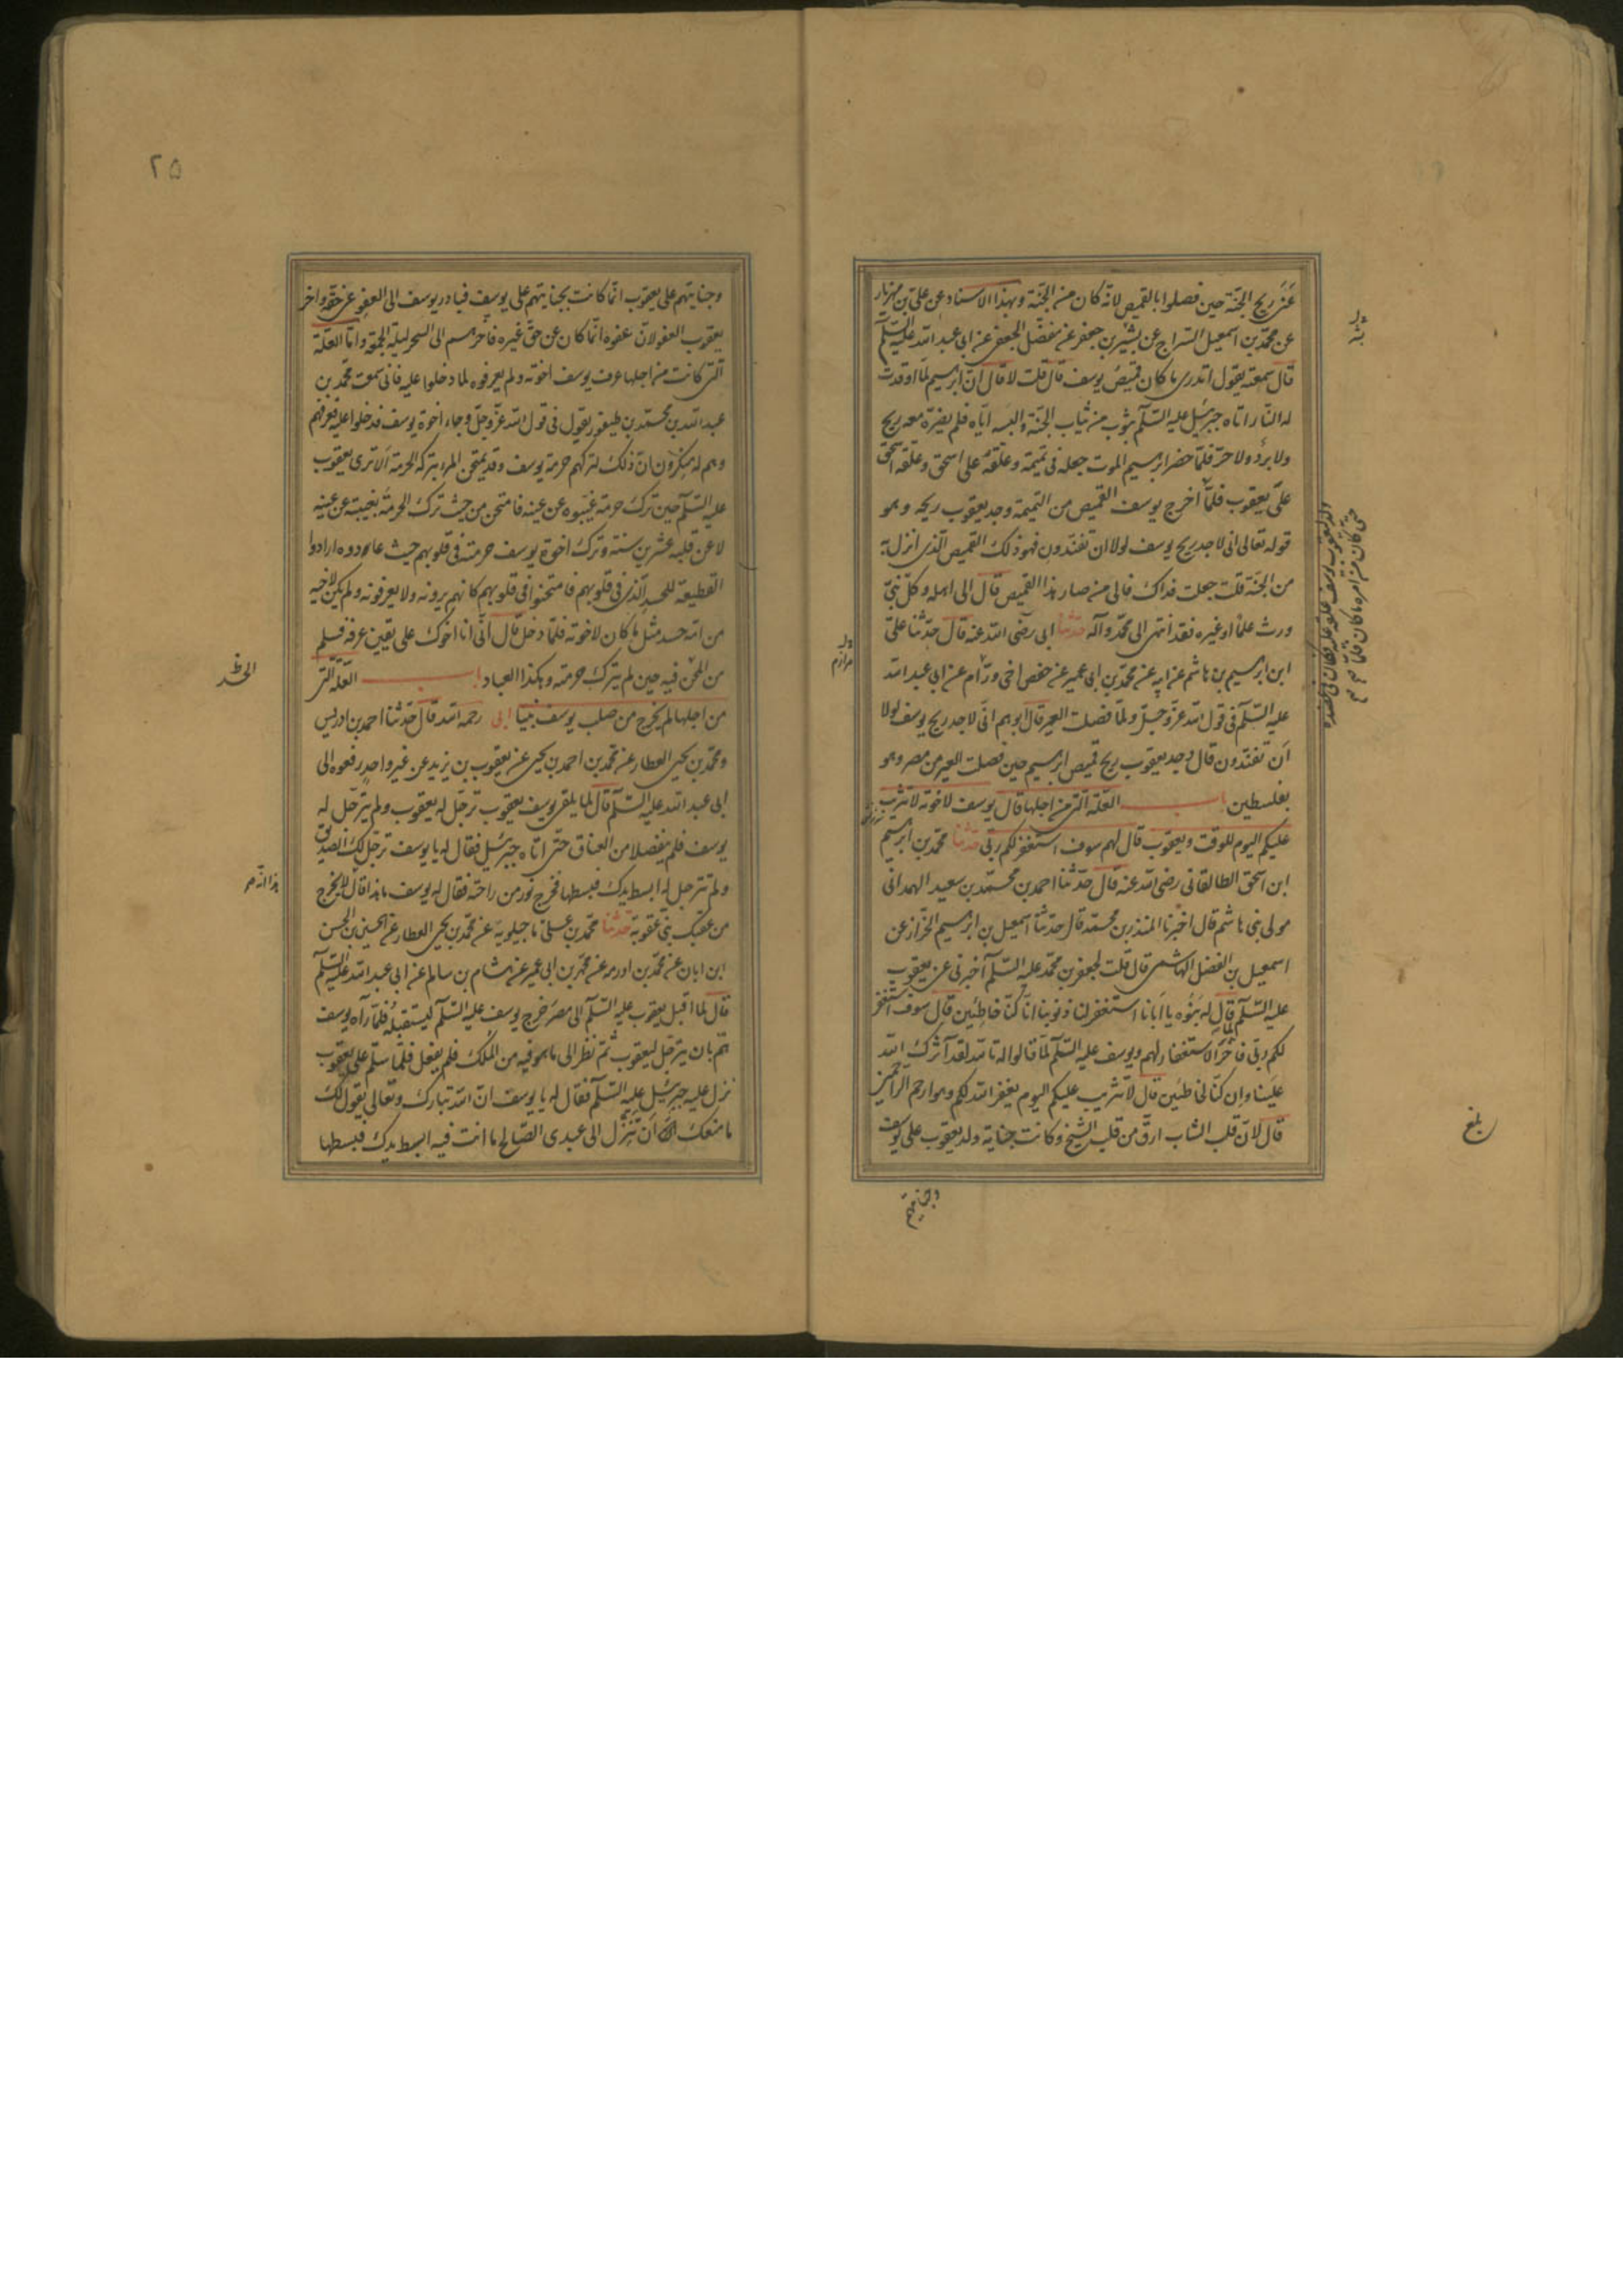 عن ريح الجنة حين فصلوا بالقميص لانه كان من الجنة وبهذا الاسناد عن علي بن مهزيار
عن محمد بن اسمعيل السراج عن بشير بن جعفر عن مفضل الجعفي عن ابي عبد الله عليه السلم
قال سمعته يقول اتدري ما كان قميص يوسف قال قلت لا قال ان ابرهيم لما اوقدت
له النار اتاه جبرئيل عليه السلم بثوب من ثياب الجنة والبسه اياه فلم يضره معه ريح
ولا برد ولا حر فلما حضر ابرهيم الموت جعله في تميمة وعلقه على اسحق وعلقه اسحق
على يعقوب
فلما اخرج يوسف القميص من التميمة وجد يعقوب ريحه وهو
قوله تعالى اني لاجد ريح يوسف لولا ان تفندون فهو ذلك القميص الذي انزل به
من الجنة قلت جعلت فداك فالى من صار هذا القميص قال الى اهله وكل نبي
ورث علما او غيره فقد انتهى الى محمد وآله حدثنا ابي رضي الله عنه قال حدثنا علي
ابن ابرهيم بن هاشم عن ابيه عن محمد بن ابي عمير عن حفص اخي عن ابي عبد الله
عليه السلم في قول الله عز وجل ولما فصلت العير قال ابوهم اني لاجد ريح يوسف لولا
ان تفندون قال وجد يعقوب ريح قميص ابرهيم حين فصلت العير من مصر وهو
بفلسطين باب العلة التي من اجلها قال يوسف لاخوته لا تثريب
عليكم اليوم للوقت ويعقوب قال لهم سوف استغفر لكم ربي حدثنا محمد بن ابرهيم
ابن اسحق الطالقاني رضي الله عنه قال حدثنا احمد بن محمد بن سعيد الهمداني
مولى بني هاشم قال اخبرنا المنذر بن محمد قال حدثنا اسمعيل بن ابرهيم الخزاز عن
اسمعيل بن الفضل الهاشمي قال قلت لجعفر بن محمد عليه السلم اخبرني عن يعقوب
عليه السلم لما قال له بنوه يا ابانا استغفر لنا ذنوبنا انا كنا خاطئين قال سوف استغفر
لكم ربي فاخر الاستغفار لهم ويوسف عليه السلم لما قالوا له تالله لقد آثرك الله
علينا وان كنا لخاطئين قال لا تثريب عليكم اليوم يغفر الله لكم وهو ارحم الراحمين
قال لان قلب الشاب ارق من قلب الشيخ وكانت جناية ولد يعقوب على يوسف
وجنايتهم
بلغ
٢٥
وجنايتهم على يعقوب انما كانت بجنايتهم على يوسف فبادر يوسف الى العفو عن حقه واخر
يعقوب العفو لان عفوه انما كان عن حق غيره فاخرهم الى السحر ليلة الجمعة واما العلة
التي كانت من اجلها عرف يوسف اخوته ولم يعرفوه لما دخلوا عليه فاني سمعت محمد بن
عبد الله بن محمد بن طيفور يقول في قول الله عز وجل وجاء اخوة يوسف فدخلوا عليه فعرفهم
وهم له منكرون ان ذلك لتركهم حرمة يوسف وقد يمتحن المرء بتركه الحرمة الا ترى يعقوب
عليه السلم حين ترك حرمة غيبوه عن عينه فامتحن من حيث ترك الحرمة بغيبته عن عينه
لا عن قلبه عشرين سنة وترك اخوة يوسف حرمته في قلوبهم حيث عادوه ارادوا
القطيعة للحسد الذي في قلوبهم فامتحنوا في قلوبهم كانهم يرونه ولا يعرفونه ولم يكن لاخيه
من امه حسد مثل ما كان لاخوته فلما دخل قال اني انا اخوك على يقين عرفه فسلم
من المحن فيه حين لم يترك حرمته وهكذا العباد باب العلة التي
من اجلها لم يخرج من صلب يوسف نبيا ابي رحمه الله قال حدثنا احمد بن ادريس
ومحمد بن يحيى العطار عن محمد بن احمد بن يحيى عن يعقوب بن يزيد عن غير واحد رفعوه الى
ابي عبد الله عليه السلم قال لما يلقى يوسف يعقوب ترجل له يعقوب ولم يترجل له
يوسف فلم ينفصلا من العناق حتى اتاه جبرئيل فقال له يا يوسف ترجل لك الصديق
ولم تترجل له ابسط يدك فبسطها فخرج نور من راحته فقال له يوسف ما هذا قال لا يخرج
من عقبك نبي عقوبة حدثنا محمد بن علي ماجيلويه عن محمد بن يحيى العطار عن الحسين بن الحسن
ابن ابان عن محمد بن اورمه عن محمد بن ابي عمير عن هشام بن سالم عن ابي عبد الله عليه السلم
قال لما اقبل يعقوب عليه السلم الى مصر خرج يوسف عليه السلم ليستقبله فلما رآه يوسف
هم بان يترجل ليعقوب ثم نظر الى ما هو فيه من الملك فلم يفعل فلما سلم على يعقوب
نزل عليه جبرئيل عليه السلم فقال له يا يوسف ان الله تبارك وتعالى يقول لك
ما منعك ان تنزل الى عبدي الصالح ما انت فيه ابسط يدك فبسطها